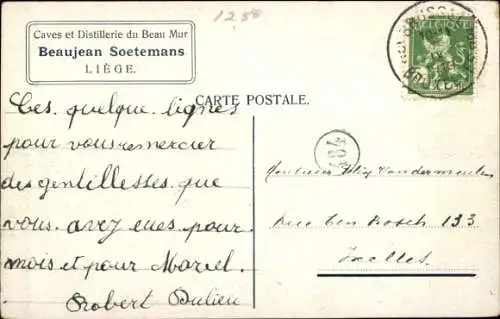 12.50
Caves et Distillerie du Beau Mur
Beaujean Soetemans
LIÉGE.
BELGIQUE
5
CARTE POSTALE.
Ces quelque lignes
pour vous remercier
des gentillesses que
vous avez eues pour
mois et pour Marcel.
Robert Dulieu
184
Monsieur Vandermeulen
Rue Ten Bosch 133
Ixelles.